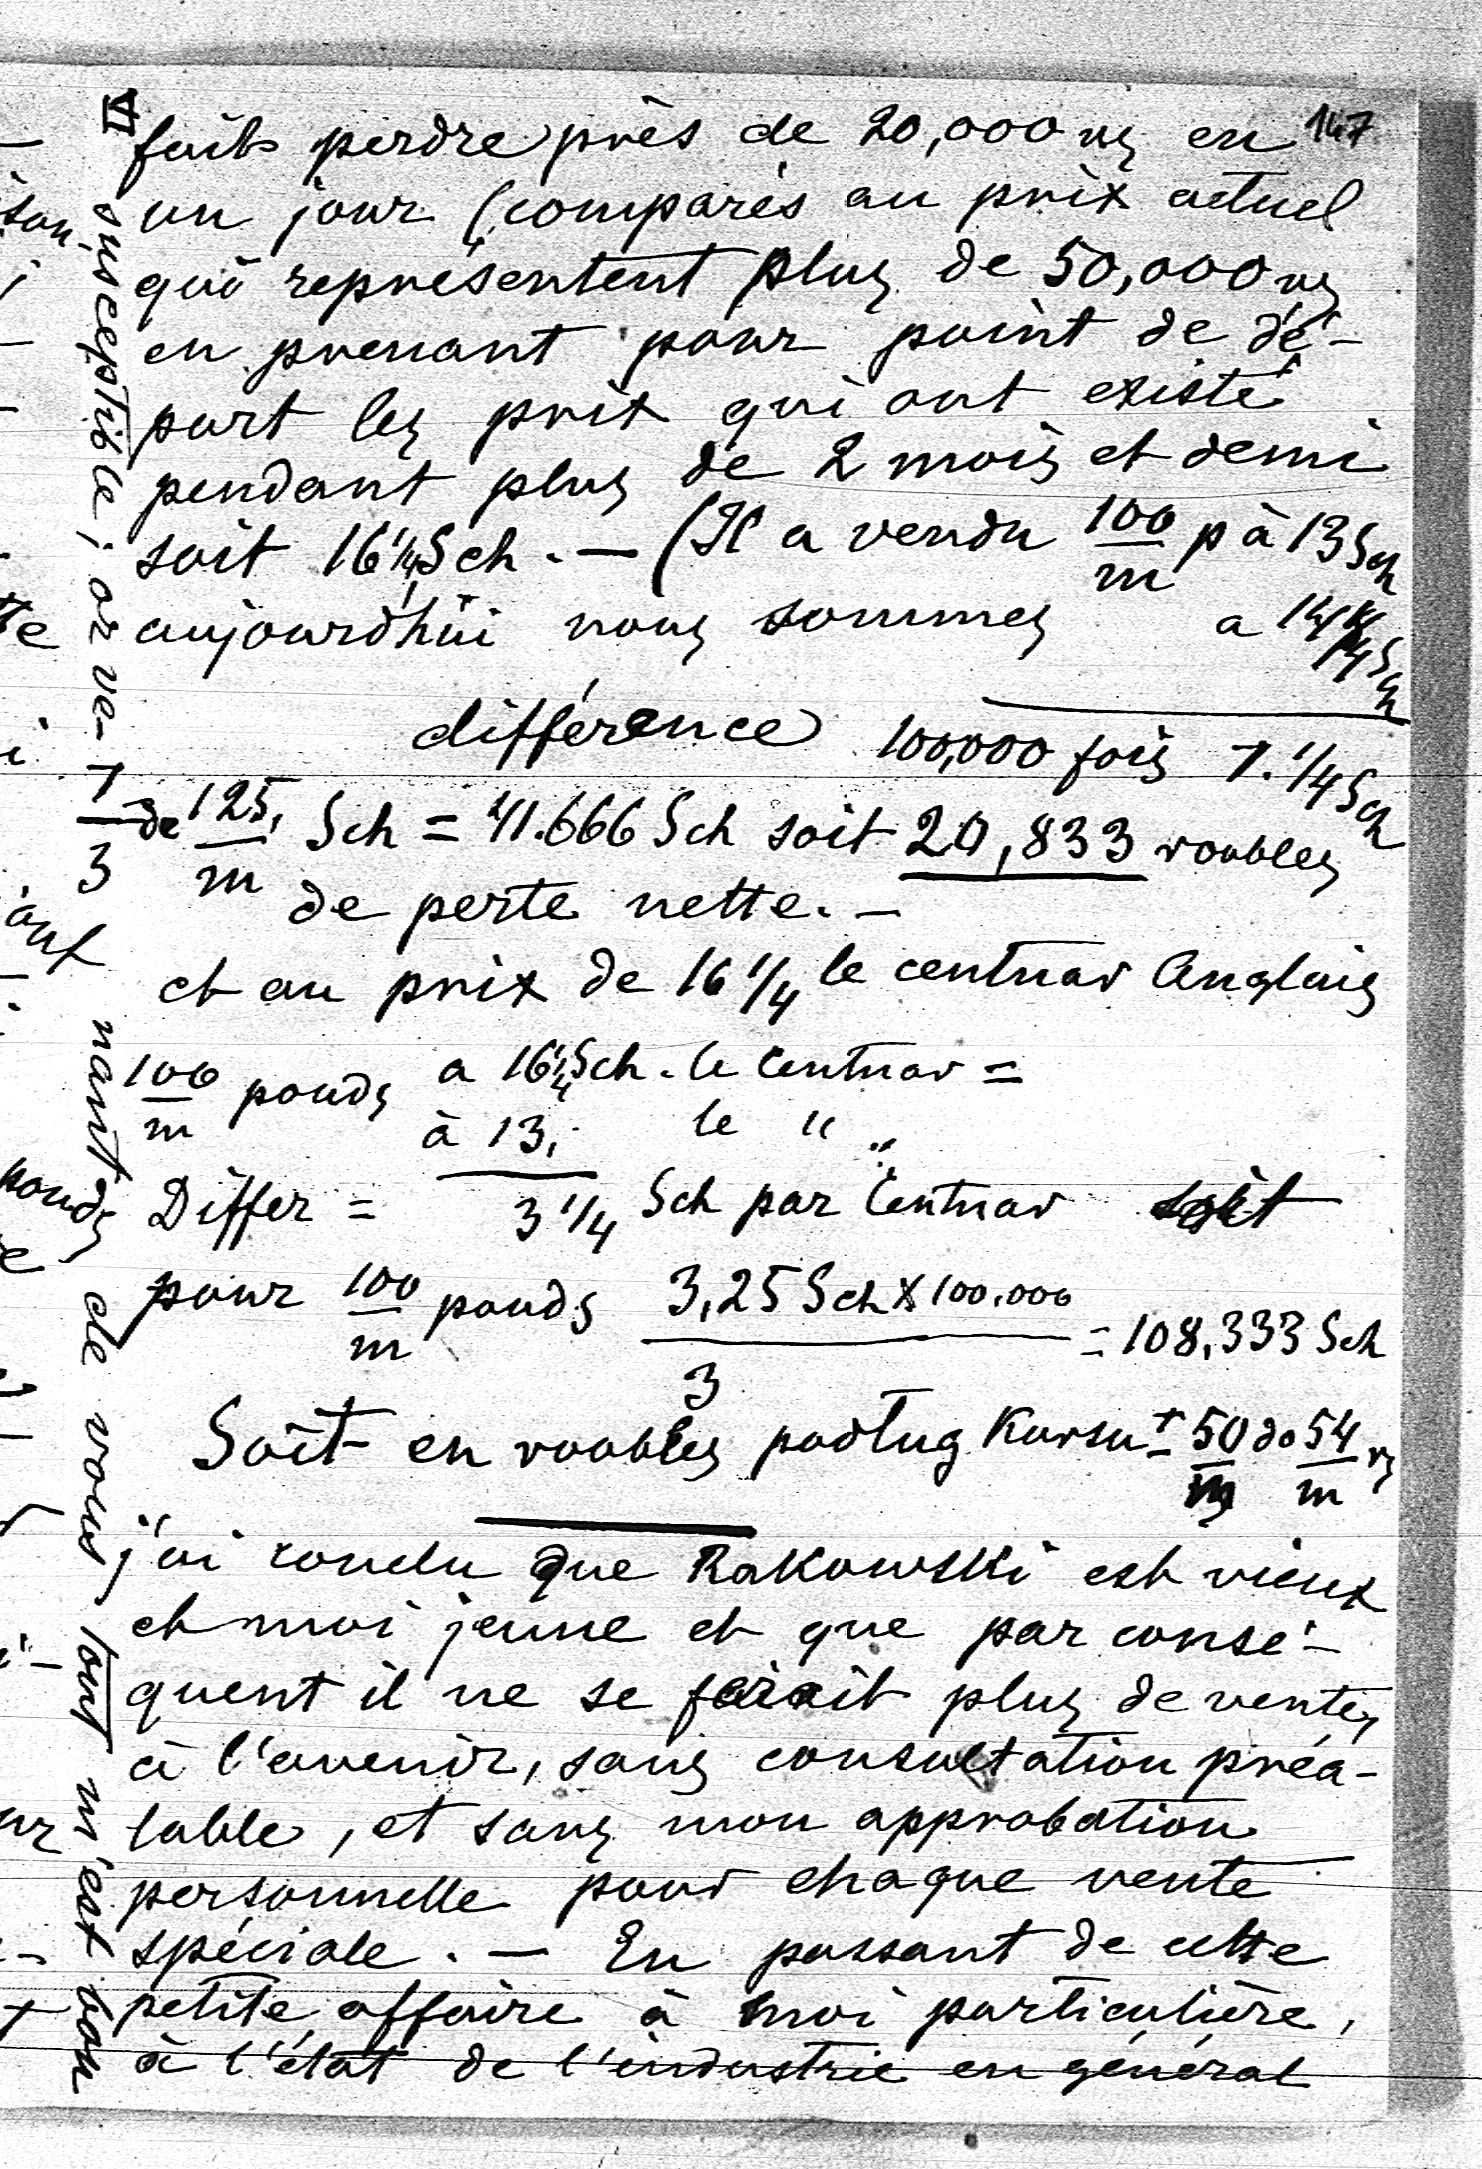 VI
147
fait perdre près de 20,000 rs en
un jour (comparés au prix actuel
qui représentent plus de 50,000 rs
en prenant pour point de dé-
part les prix qui ont existé
pendant plus de 2 mois et demi
soit 16 1/4 Sch. — (Il a vendu 100/m p à 13 Sch
aujourdhui nous sommes a 14 1/4 Sch
différence 100,000 fois 1. 1/4 Sch
1/3 de 125,/m Sch = 41.666 Sch soit 20,833 roubles
de perte nette. —
et au prix de 16 1/4 le centnar Anglais
100/m pouds a 16 1/4 Sch. le Centnar =
à 13,- le " "
Differ = 3 1/4 Sch par Centnar soit
pour 100/m pouds 3,25 Sch x 100.000 / 3 = 108,333 Sch
Soit en roubles podług Kursu ± 50/m do 54/m rs
j'ai conclu que Rakowski est vieux
et moi jeune et que par consé-
quent il ne se ferait plus de ventes
à l'avenir, sans consultation préa-
lable, et sans mon approbation
personnelle pour chaque vente
spéciale. — En passant de cette
petite affaire à moi particulière,
à l'état de l'industrie en général
susceptible; or ve- nant de vous tout m'est bon